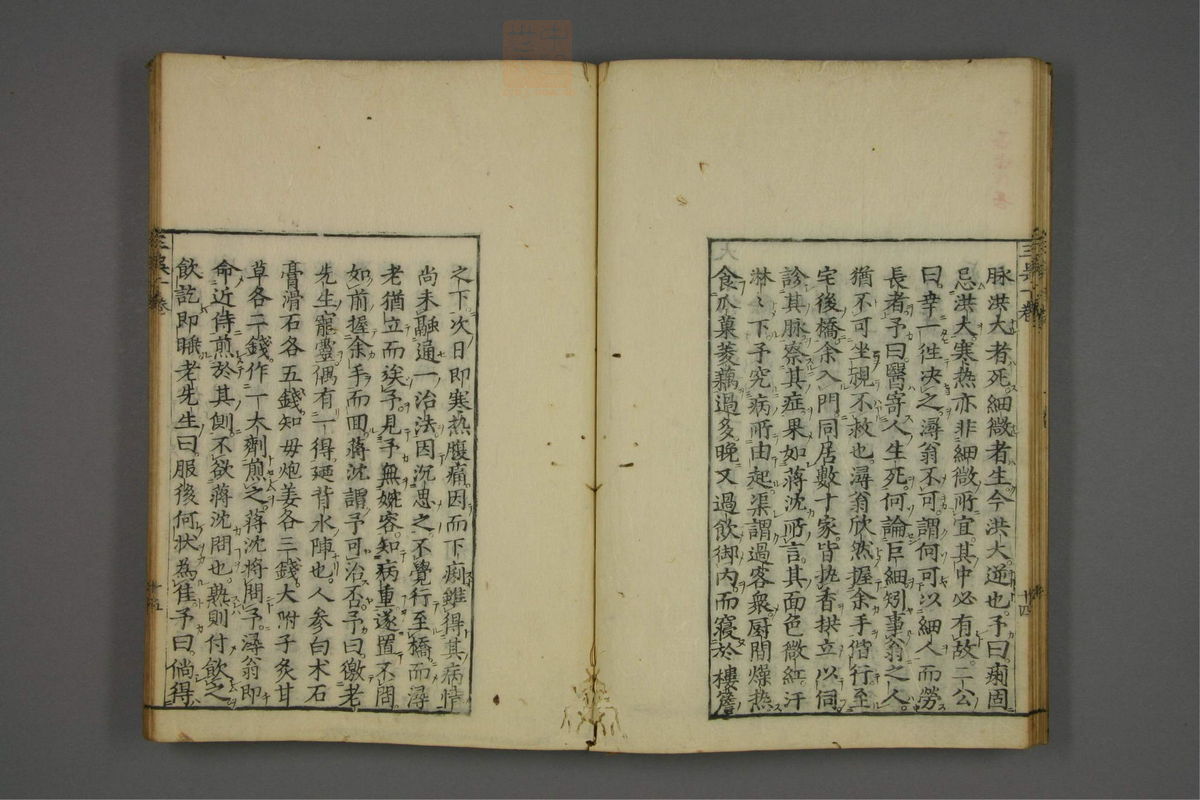 脉洪大者死細微者生今洪大逆也予曰痢固
忌洪大寒热亦非細微所宜其中必有故二公
曰幸一徃决之潯翁不可謂何可以細人而勞
長者予曰醫寄人生死何論巨細矧事翁之人
猶不可坐視不救也潯翁欣然握余手偕行至
宅後橋余入門同居數十家皆执香拱立以伺
診其脉察其症果如蔣沈所言其面色微紅汗
淋〻下予究病所由起渠謂過客衆厨間燥热
食瓜菓菱藕過多晚又過飲御内而寢於樓簷
之下次日即寒热腹痛因而下痢雖得其病情
尚未融通一治法因沉思之不覺行至橋而潯
老猶立而竢予見予無婉容知病重遂置不問
如前握余手而回蔣沈謂予可治否予曰徼老
先生寵靈偶有一得廼背水陣也人参白术石
膏滑石各五錢知毋炮姜各三錢大附子炙甘
草各二錢作一大劑煎之蔣沈將問予潯翁即
命近侍煎於其側不欲蔣沈問也熟則付飲之
飲訖即睡老先生曰服後何状為佳予曰倘得
三吳一卷
三吳一卷